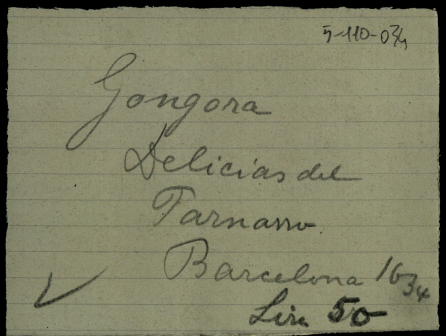 5-110-03/4
Gongora
Delicias del
Parnasso
Barcelona 1634
Lire 50